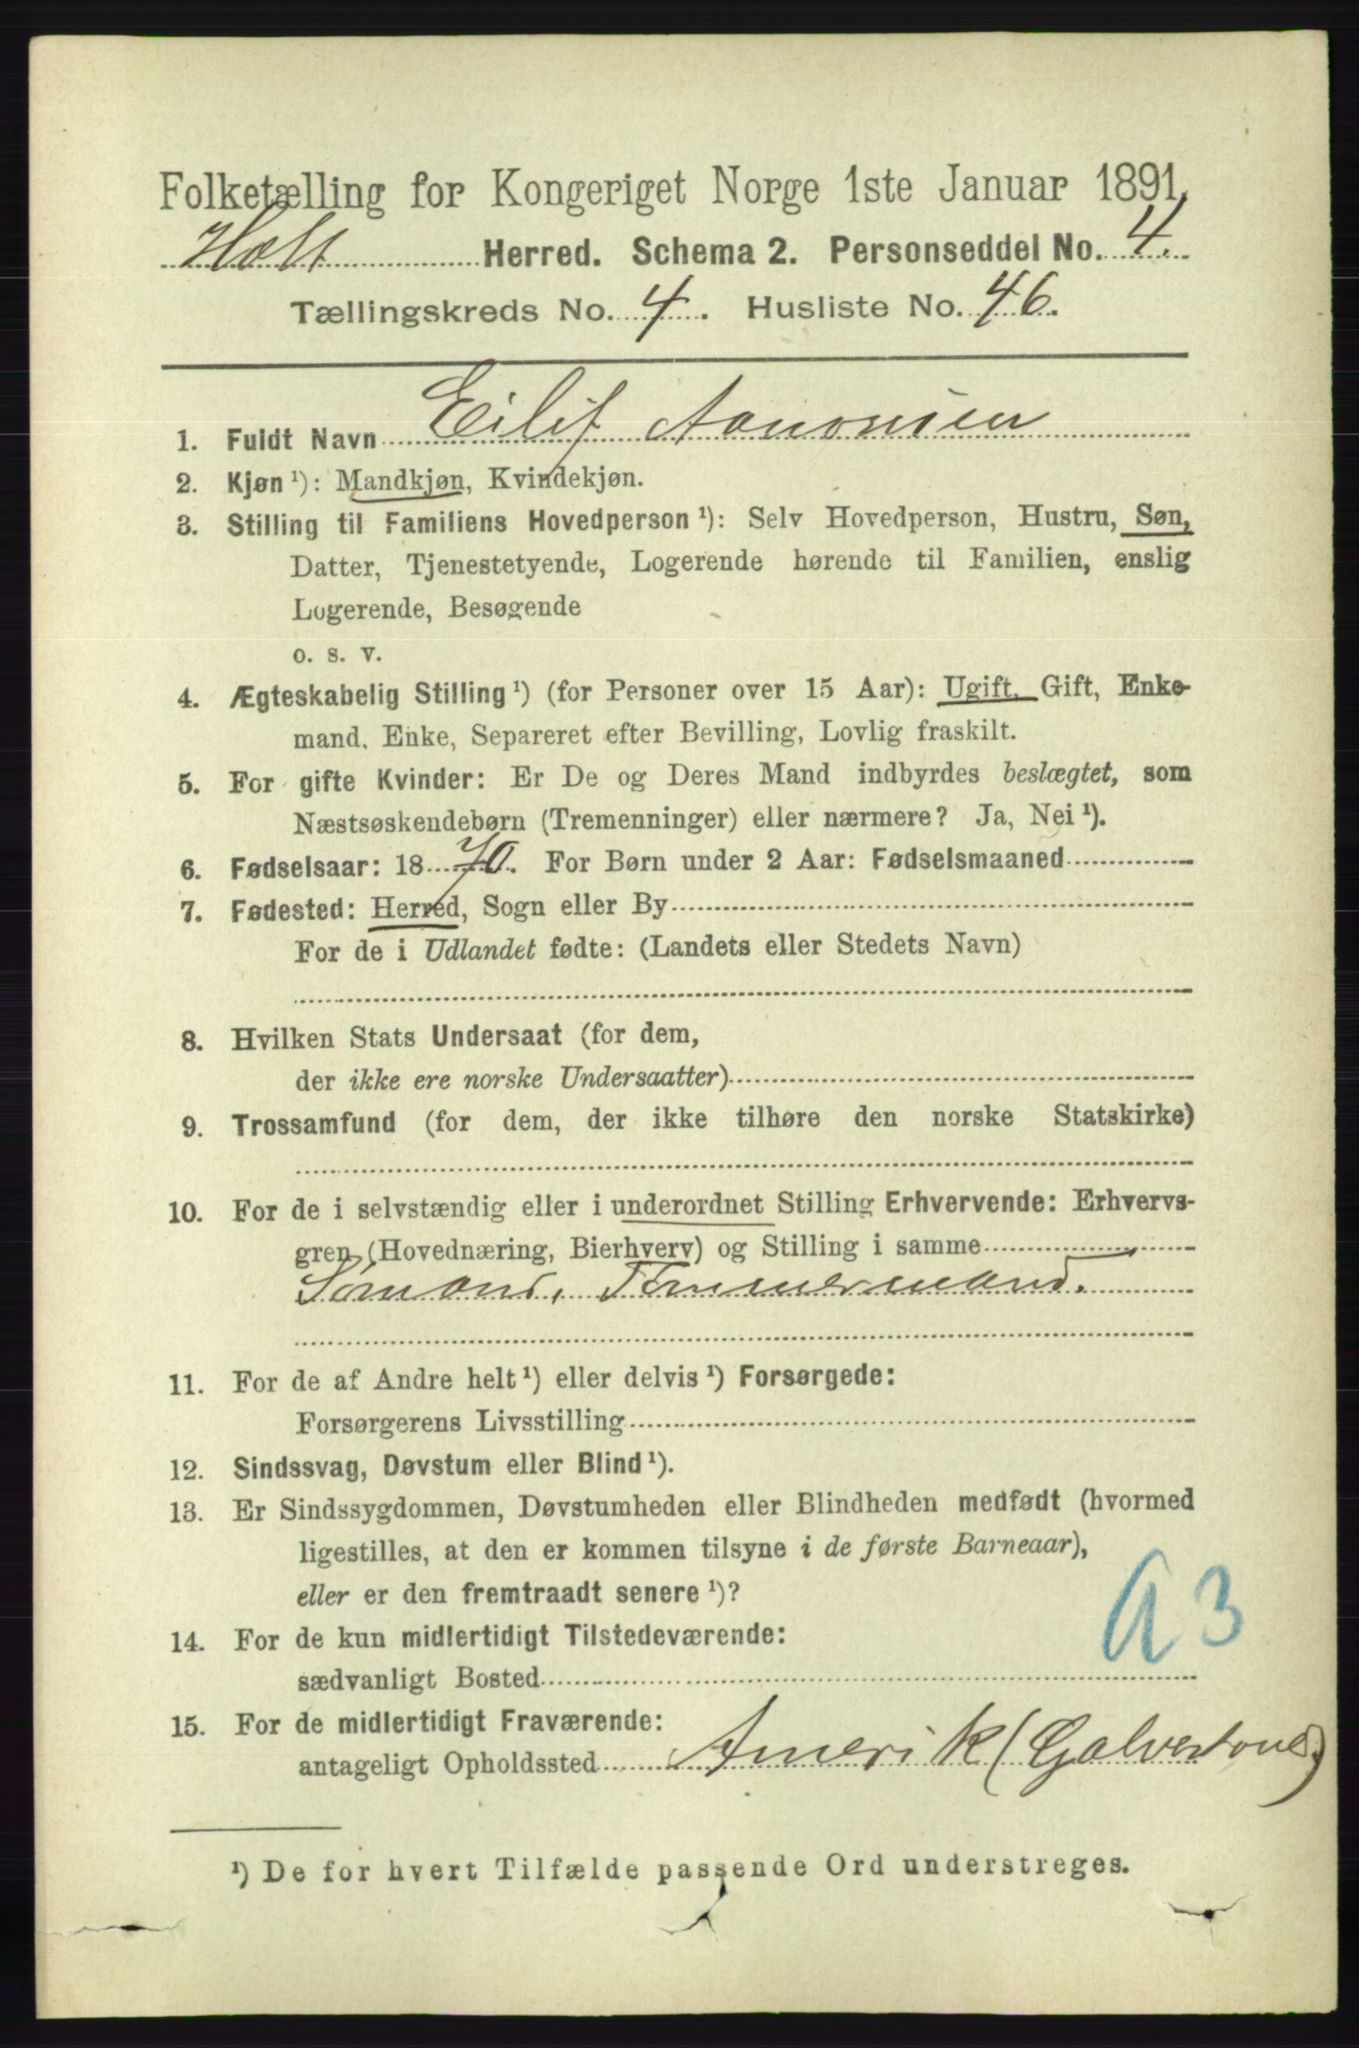 Folketælling for Kongeriget Norge 1ste Januar 1891.
Holt Herred. Schema 2. Personseddel No. 4.
Tællingskreds No. 4. Husliste No. 46.
1. Fuldt Navn Eilif Aanonsen
2. Kjøn ¹): Mandkjøn, Kvindekjøn.
3. Stilling til Familiens Hovedperson ¹): Selv Hovedperson, Hustru, Søn,
Datter, Tjenestetyende, Logerende hørende til Familien, enslig
Logerende, Besøgende
o. s. v.
4. Ægteskabelig Stilling ¹) (for Personer over 15 Aar): Ugift, Gift, Enke-
mand, Enke, Separeret efter Bevilling, Lovlig fraskilt.
5. For gifte Kvinder: Er De og Deres Mand indbyrdes beslægtet, som
Næstsøskendebørn (Tremenninger) eller nærmere? Ja, Nei ¹).
6. Fødselsaar: 1870. For Børn under 2 Aar: Fødselsmaaned
7. Fødested: Herred, Sogn eller By
For de i Udlandet fødte: (Landets eller Stedets Navn)
8. Hvilken Stats Undersaat (for dem,
der ikke ere norske Undersaatter)
9. Trossamfund (for dem, der ikke tilhøre den norske Statskirke)
10. For de i selvstændig eller i underordnet Stilling Erhvervende: Erhvervs-
gren (Hovednæring, Bierhverv) og Stilling i samme
Sømand, Tømmermand.
11. For de af Andre helt ¹) eller delvis ¹) Forsørgede:
Forsørgerens Livsstilling
12. Sindssvag, Døvstum eller Blind ¹).
13. Er Sindssygdommen, Døvstumheden eller Blindheden medfødt (hvormed
ligestilles, at den er kommen tilsyne i de første Barneaar),
eller er den fremtraadt senere ¹)?
a 3
14. For de kun midlertidigt Tilstedeværende:
sædvanligt Bosted
15. For de midlertidigt Fraværende:
antageligt Opholdssted Amerik (Galvestone)
¹) De for hvert Tilfælde passende Ord understreges.